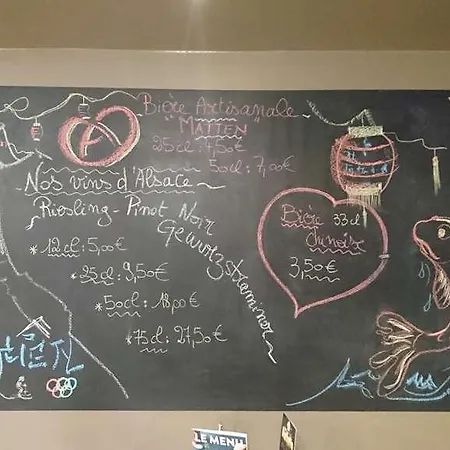 Bière Artisanale
"MATTEN"
25cl : 4,50€
50cl : 7,00€
Nos vins d'Alsace
Riesling - Pinot Noir
Gewurztraminer
* 12cl : 5,00€
* 25cl : 9,50€
* 50cl : 18,00€
* 75cl : 27,50€
Bière 33cl
Chinoise
3,50€
LE MENU